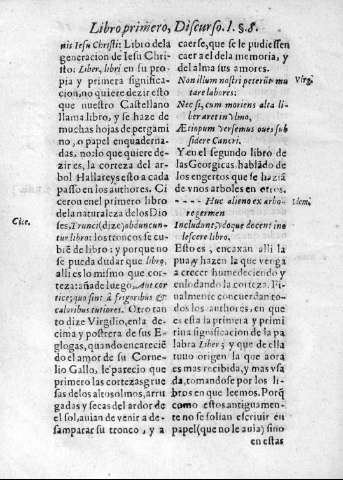 Libro primero, Discurso. 1. §. 8.
nis Iesu Christi: Libro dela
generacion de Iesu Chri-
sto: Liber, libri en su pro-
pia y primera significa-
cion, no quiere dezir esto
que nuestro Castellano
llama libro, y se haze de
muchas hojas de pergami
no, o papel enquaderna-
das, no: lo que quiere de-
zir es, la corteza del ar-
bol Hallareys esto a cada
passo en los authores. Ci
ceron en el primer libro
dela naturaleza de los Dio
Cice.
ses, Trunci (dize) abduncun-
tur libro: los troncos se cu-
bren de libro: y porque no
se pueda dudar que libro,
alli es lo mismo que cor-
teza: añade luego, Aut cor
tice; quo sint à frigoribus &
caloribus tutiores. Otro tan
to dize Virgilio, en la de-
cima y postrera de sus E-
glogas, quando encarecio
el amor de su Corne-
lio Gallo, le parecio que
primero las cortezas grue
sas de los altos olmos, arru
gadas y secas del ardor de
el sol, auian de venir a de-
samparar su tronco, y a
caerse, que se le pudiessen
caer a el dela memoria, y
del alma sus amores.
Non illum nostri possunt mu-
Virg.
tare labores:
Nec si, cum moriens alta li-
ber aret in vlmo,
Æthiopum versemus oues sub
sidere Cancri.
Y en el segundo libro de
las Georgicas. hablãdo de
los engertos que se haziã
de vnos arboles en otros.
---- Huc alieno ex arbo-
Idem.
re germen
Includunt, vdoque docent ino
lescere libro.
Esto es, encaxan alli la
pua, y hazen la que venga
a crecer humedeciendo y
enlodando la corteza. Fi-
nalmente concuerdan to-
dos los authores, en que
es esta la primera y primi
tiua significacion de la pa
labra Liber; y que de ella
tuuo origen la que aora
es mas recibida, y mas vsa
da, tomandose por los li-
bros en que leemos. Porq̃
como estos antiguamen-
te no se solian escriuir en
papel (que no le auia) sino
en estas